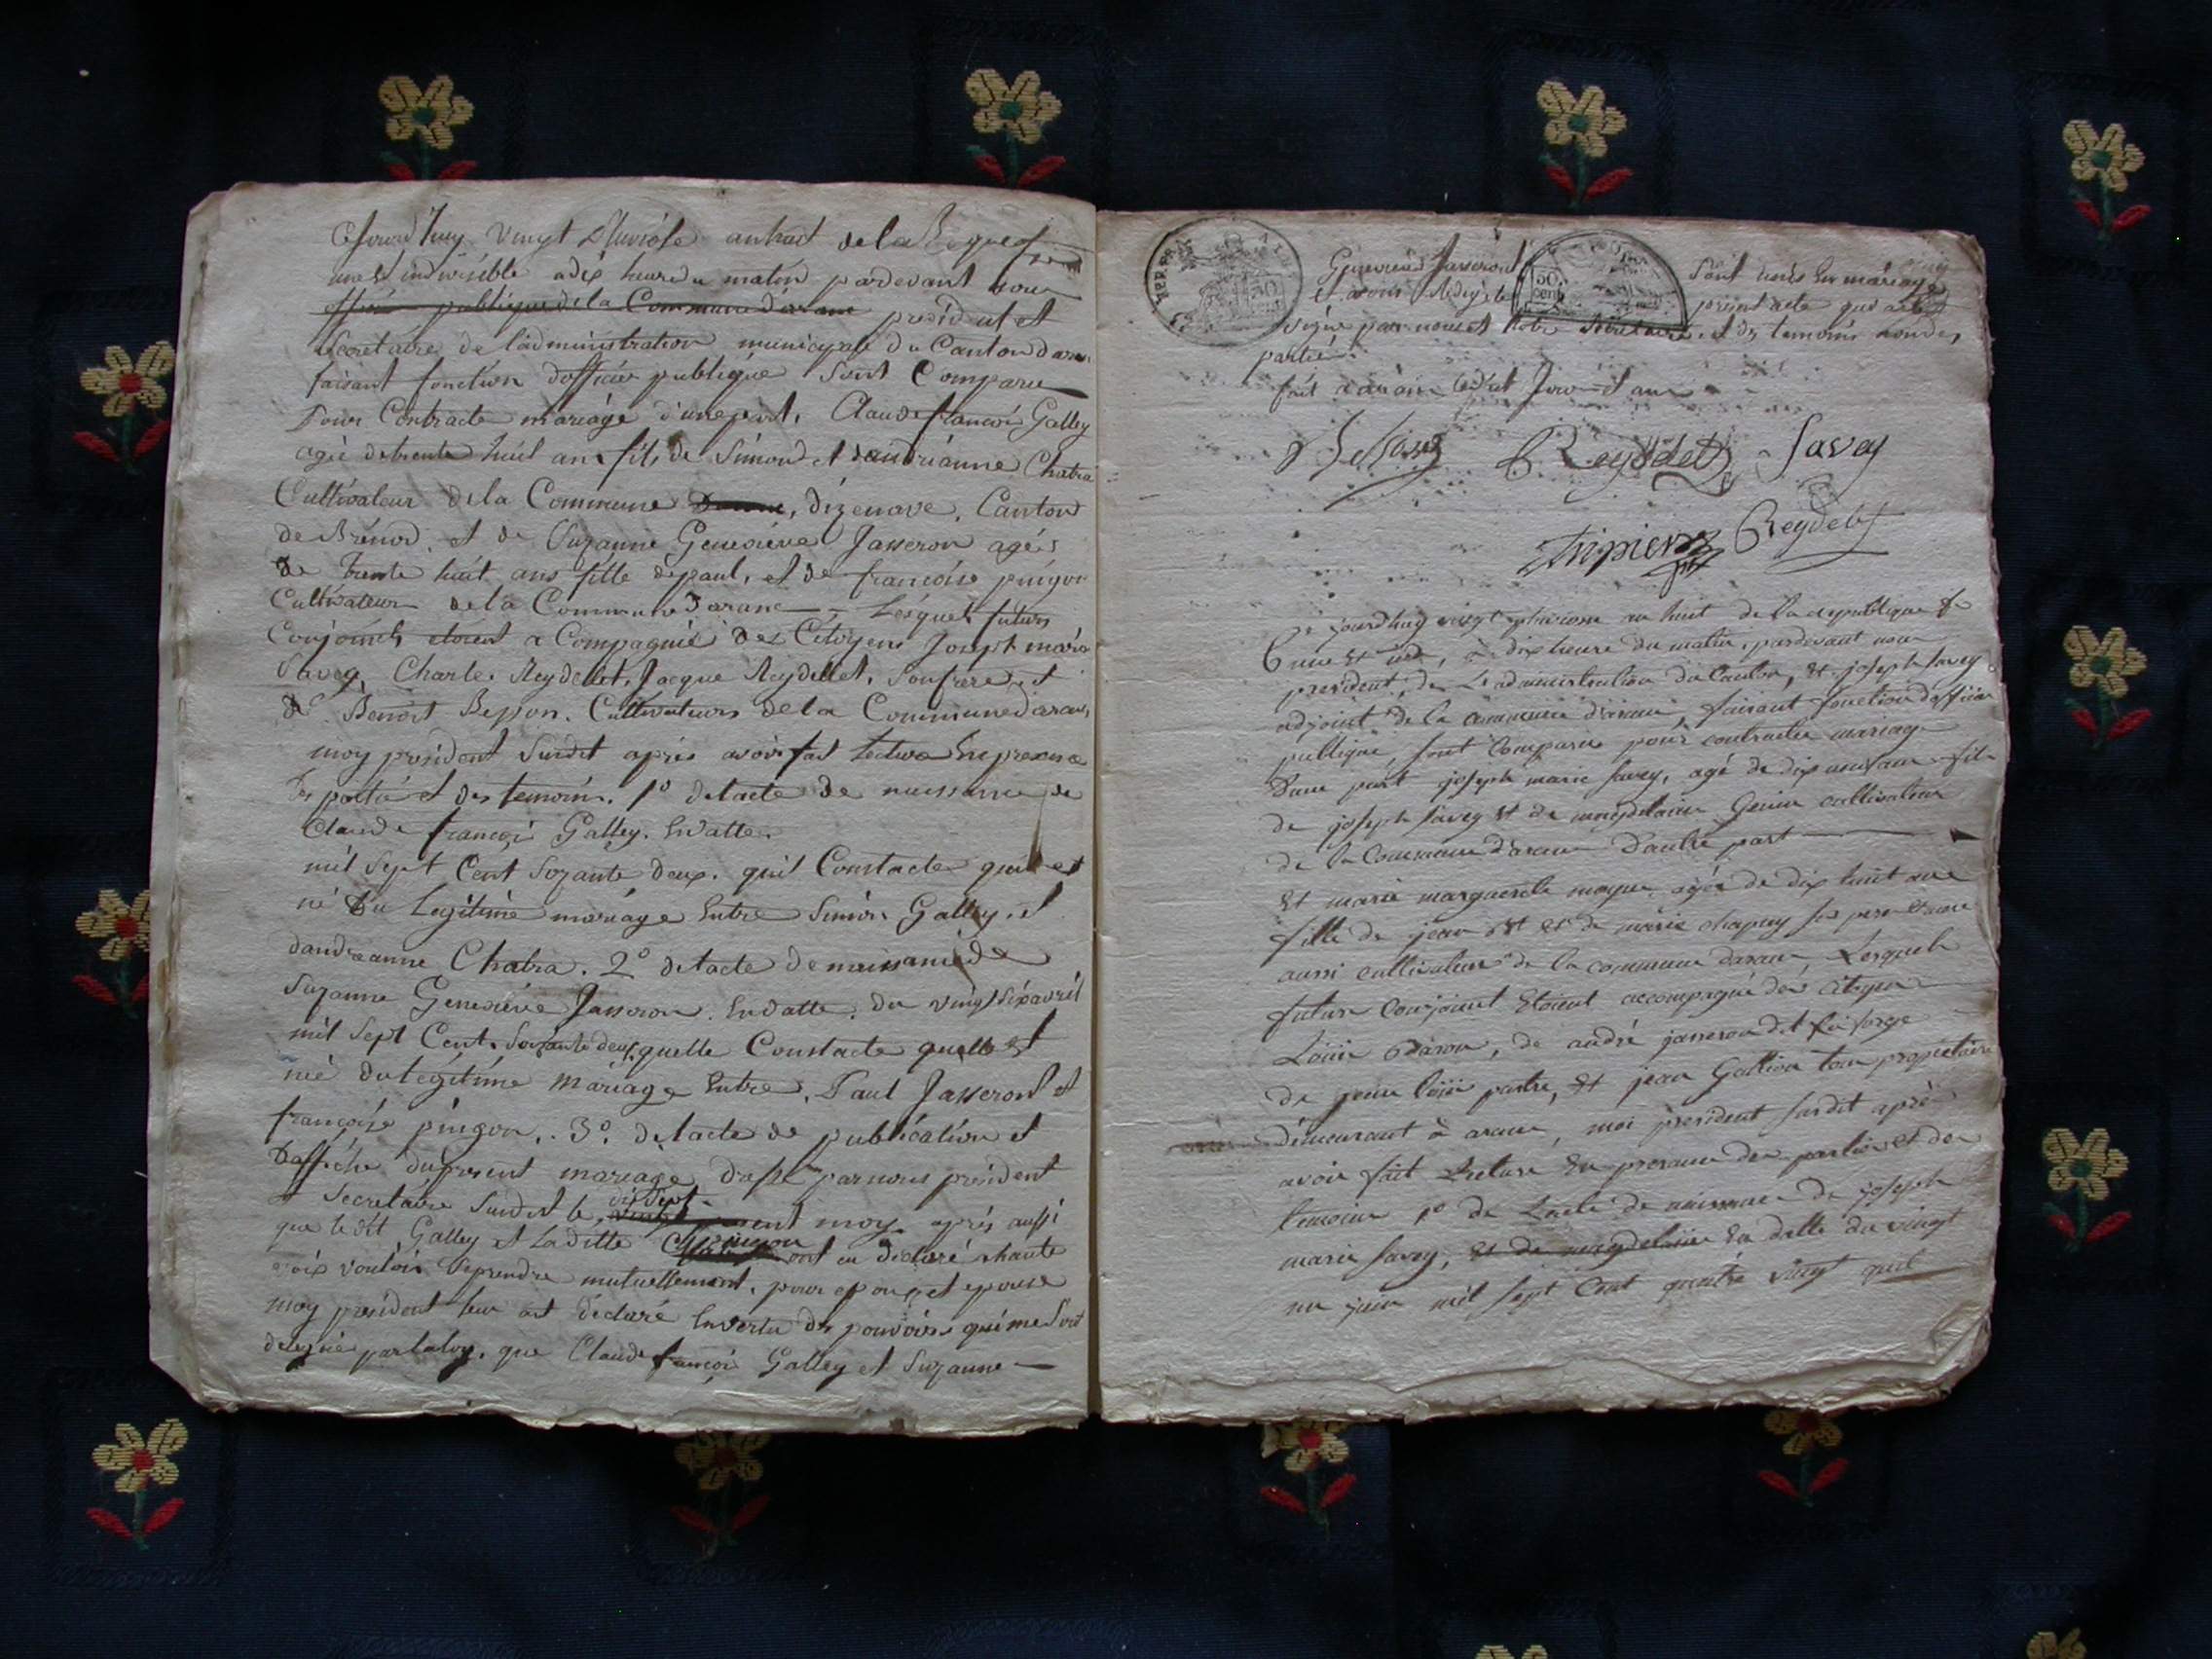 Cejourd'huy vingt Pluviose an huit de la Repque f
une et indivisible a dix heure du matin pardevant nous
officier publique de la Commune d'arane président et
Secretaire de l'administration municipale du Canton daran
faisant fonction dofficier publique Sont Comparu
Pour Contracte mariage d'une part, Claude francois Galley
agé de trente huit ans fils de Simond et dandrianne Chatra
Cultivateur de la Commune, dizenave, Canton
de Brénod, et de Suzanne Geneviéve Jasseron agéé
de trente huit ans fille de paul, et de francoise pingon
Cultivateur de la Commune darane Lesquels futurs
Conjoints etoient a Compagnié des Citoyens Joseph marie
Savey, Charle Reydellet, Jacque Reydellet, Son frere, et
de Benoit Beson. Cultivateurs de la Commune daran,
moy président Surdit aprés avoir fait lecture En presence
des partié et des temoins. 1º de lacte de naissance de
Claude françois Galley. En datte
mil Sept Cent Sozante deux. quil Constacte quil est
né du Legitime mariage Entre Simon Galley, et
dandreanne Chatra. 2º de lacte de naissance de
Suzanne Geneviéve Jasseron. En datte. du vingt Six avril
mil Sept Cent. Soixante deux, quelle Constacte quelle est
née du légitime mariage Entre, Paul Jasseront et
françoise pingon. 3º. de lacte de publication et
daffiche du present mariage dressé par nous président
et Secretaire Surdit le dix Sept present moy aprés aussi
que le dit Galley et La ditte pingon ont eu declaré a haute
voix vouloir Se prendre mutuellement, pour epoux et epouse
moy président leur ait déclaré En vertu des pouvoirs qui me Sont
delegué par la loy, que Claude francois Galley et Suzanne
Genevieve Jasseront Sont unis En mariage
et avons Redigé le 50 cent present acte que a été
Signé par nous et Notre Secretaire, et des temoins non des
partiés.
fait a arane le dit Jour et an
Reydellet Savey
Reydellet
Ce jourdhuy vingt pluviose an huit de la republique f
une et ind, à dix heure du matin, pardevant nous
président de L'administration du Canton, et joseph Savey
adjoint de la commune d'arane, faisant fonction dofficier
publique, sont Comparus pour contracter mariage
Dune part joseph marie Savey, agé de dix neuf ans fils
de joseph Savey et de magdelaine Genin cultivateur
de la Commune d'arane D'autre part
Et marie marguerite moyne agée de dix huit ans
fille de jean et de marie chapuy ses pere et mere
aussi cultivateur de la commune darane, Lesquels
futurs Conjoint Etoient accompagné des Citoyens
Louis Odaron, de andré jasseron dit La forge
de jean Louis partre, et jean Gallion tous propriétaire
démeurant à arane, moi president surdit après
avoir fait Lecture En presence des parties et des
temoins 1º de Lacte de naissance de joseph
marie Savey, et de magdelaine En datte du vingt
un juin mil sept Cent quatre vingt quil